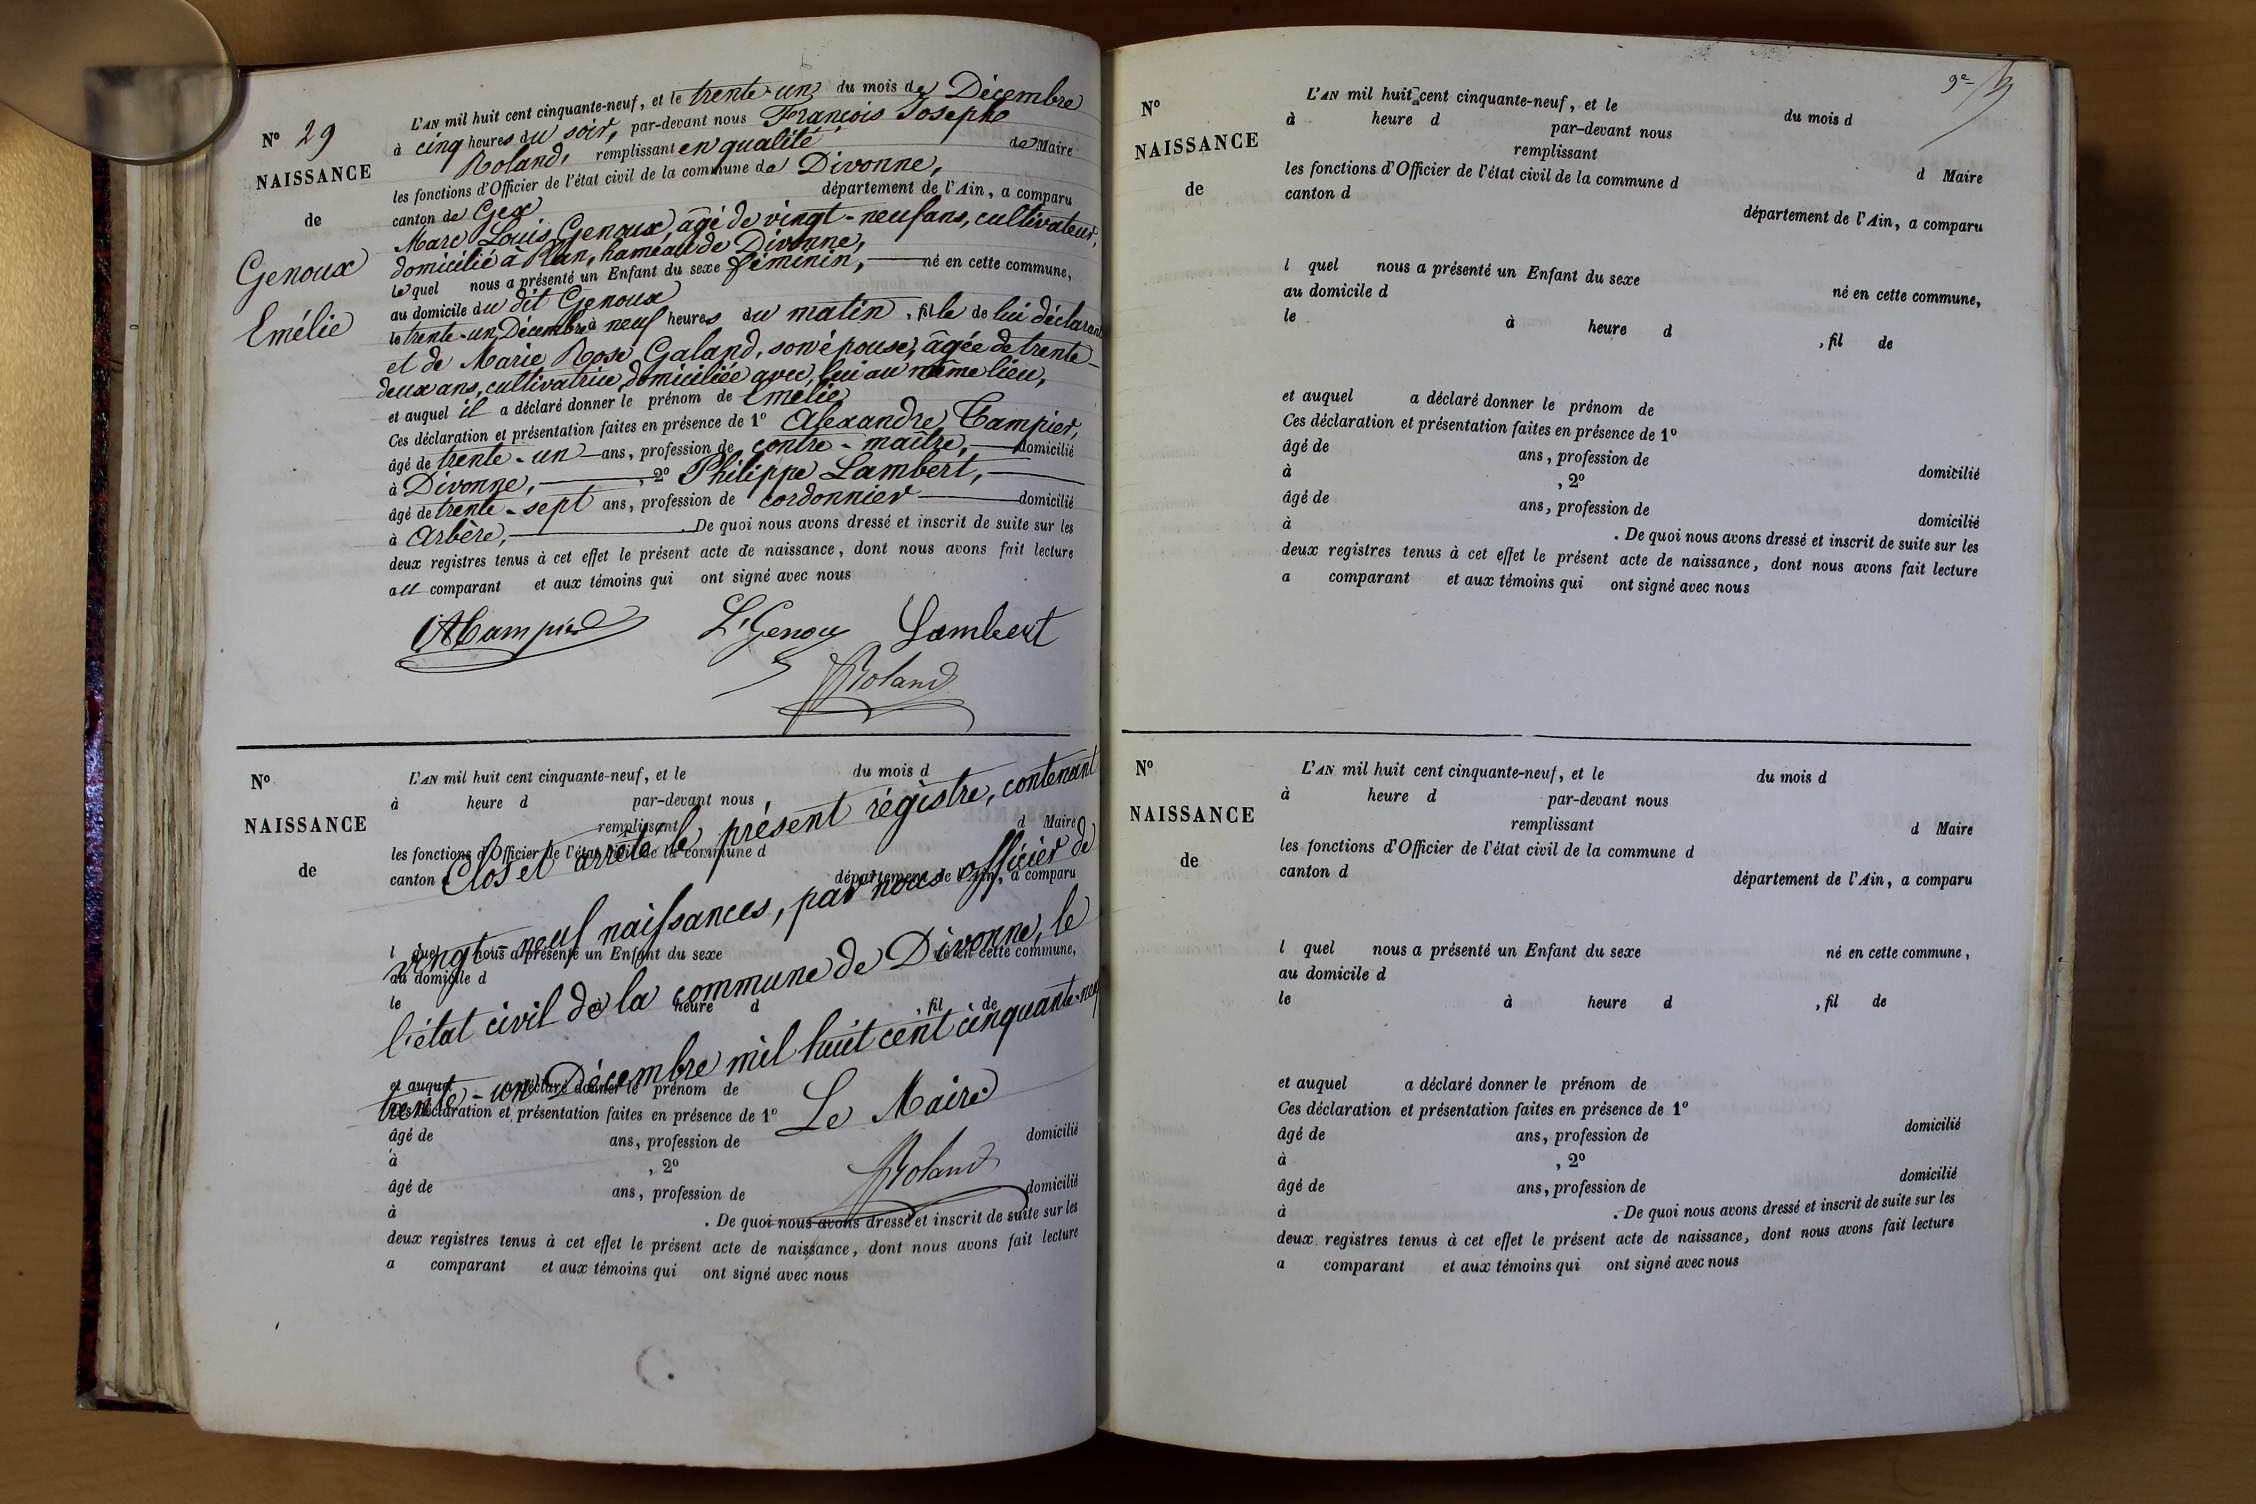 N° 29
NAISSANCE
de
Genoux
Emélie
L'AN mil huit cent cinquante-neuf, et le trente-un du mois de Décembre
à cinq heures du soir, par-devant nous François Joseph
Roland, remplissant en qualité de Maire
les fonctions d'Officier de l'état civil de la commune de Divonne,
canton de Gex département de l'Ain, a comparu
Marc Louis Genoux, âgé de vingt-neuf ans, cultivateur,
domicilié à Plan, hameau de Divonne,
lequel nous a présenté un Enfant du sexe féminin, né en cette commune,
au domicile du dit Genoux
le trente-un Décembre à neuf heures du matin, fille de lui déclarant
et de Marie Rose Galand, son épouse, âgée de trente-
deux ans, cultivatrice, domiciliée avec lui au même lieu,
et auquel il a déclaré donner le prénom de Emélie
Ces déclaration et présentation faites en présence de 1° Alexandre Tampier,
âgé de trente-un ans, profession de contre-maître, domicilié
à Divonne, , 2° Philippe Lambert,
âgé de trente-sept ans, profession de cordonnier domicilié
à Arbère, . De quoi nous avons dressé et inscrit de suite sur les
deux registres tenus à cet effet le présent acte de naissance, dont nous avons fait lecture
au comparant et aux témoins qui ont signé avec nous
L. Genoux Lambert
Roland
N°
NAISSANCE
de
L'AN mil huit cent cinquante-neuf, et le du mois d
à heure d par-devant nous
remplissant d Maire
les fonctions d'Officier de l'état civil de la commune d
canton d département de l'Ain, a comparu
l quel nous a présenté un Enfant du sexe né en cette commune,
au domicile d
le à heure d , fil de
et auquel a déclaré donner le prénom de
Ces déclaration et présentation faites en présence de 1°
âgé de ans, profession de domicilié
à , 2°
âgé de ans, profession de domicilié
à . De quoi nous avons dressé et inscrit de suite sur les
deux registres tenus à cet effet le présent acte de naissance, dont nous avons fait lecture
a comparant et aux témoins qui ont signé avec nous
Clos et arrêté le présent régistre, contenant
vingt-neuf naissances, par nous officier de
l'état civil de la commune de Divonne, le
trente-un Décembre mil huit cent cinquante-neuf
Le Maire
Roland
9e
N°
NAISSANCE
de
L'AN mil huit cent cinquante-neuf, et le du mois d
à heure d par-devant nous
remplissant d Maire
les fonctions d'Officier de l'état civil de la commune d
canton d département de l'Ain, a comparu
l quel nous a présenté un Enfant du sexe né en cette commune,
au domicile d
le à heure d , fil de
et auquel a déclaré donner le prénom de
Ces déclaration et présentation faites en présence de 1°
âgé de ans, profession de domicilié
à , 2°
âgé de ans, profession de domicilié
à . De quoi nous avons dressé et inscrit de suite sur les
deux registres tenus à cet effet le présent acte de naissance, dont nous avons fait lecture
a comparant et aux témoins qui ont signé avec nous
N°
NAISSANCE
de
L'AN mil huit cent cinquante-neuf, et le du mois d
à heure d par-devant nous
remplissant d Maire
les fonctions d'Officier de l'état civil de la commune d
canton d département de l'Ain, a comparu
l quel nous a présenté un Enfant du sexe né en cette commune,
au domicile d
le à heure d , fil de
et auquel a déclaré donner le prénom de
Ces déclaration et présentation faites en présence de 1°
âgé de ans, profession de domicilié
à , 2°
âgé de ans, profession de domicilié
à . De quoi nous avons dressé et inscrit de suite sur les
deux registres tenus à cet effet le présent acte de naissance, dont nous avons fait lecture
a comparant et aux témoins qui ont signé avec nous